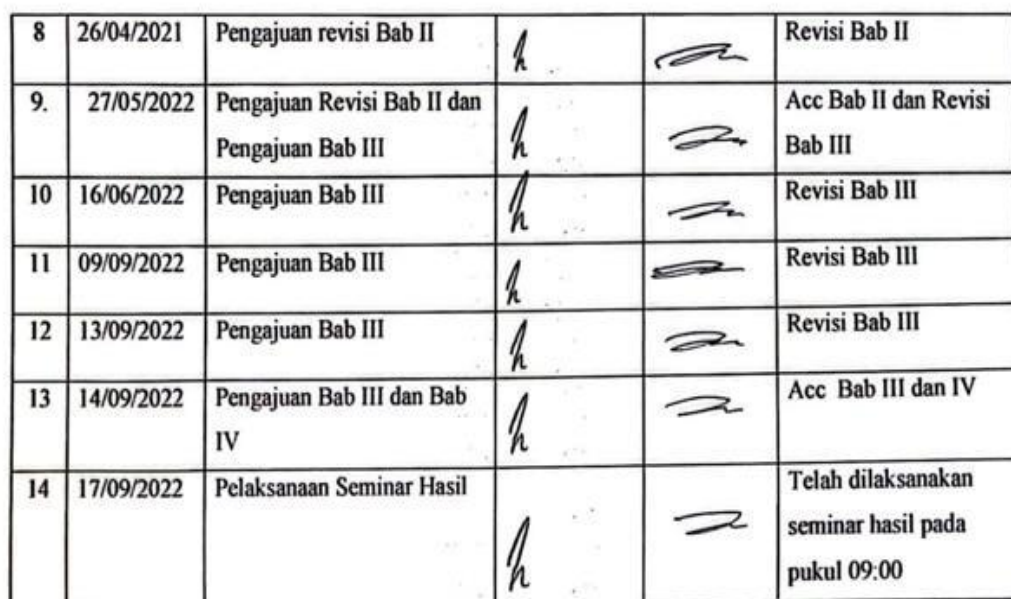 8 26/04/2021 Pengajuan revisi Bab II Revisi Bab II
9. 27/05/2022 Pengajuan Revisi Bab II dan Acc Bab II dan Revisi
Pengajuan Bab III Bab III
10 16/06/2022 Pengajuan Bab III Revisi Bab III
11 09/09/2022 Pengajuan Bab III Revisi Bab III
12 13/09/2022 Pengajuan Bab III Revisi Bab III
13 14/09/2022 Pengajuan Bab III dan Bab Acc Bab III dan IV
IV
14 17/09/2022 Pelaksanaan Seminar Hasil Telah dilaksanakan
seminar hasil pada
pukul 09:00